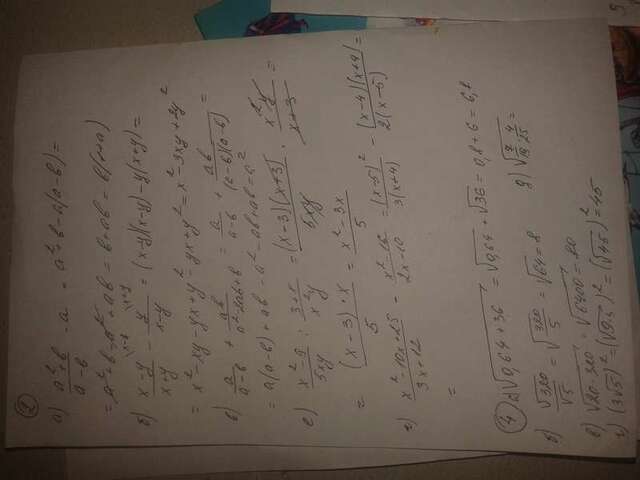 ②
а) a²+b / a-b - a = a²+b-a(a-b) =
= a²+b-a²+ab = b+ab = b(1+a)
б) x-y / x+y - y / x-y = (x-y)(x-y)-y(x+y) =
= x²-xy-yx+y²-yx+y² = x²-3xy+2y²
в) a / a-b + ab / a²-2ab+b = a / a-b + ab / (a-b)(a-b) =
= a(a-b)+ab = a²-ab+ab = a²
x²-9 / 5xy : 3+x / x²y = (x-3)(x+3) / 5xy · x²y / x+3 =
= (x-3)·x / 5 = x²-3x / 5
x²-10x+25 / 3x+12 - x²-16 / 2x-10 = (x-5)² / 3(x+4) - (x-4)(x+4) / 2(x-5) =
=
④ √0,64+36 = √0,64 + √36 = 0,8+6 = 6,8
б) √320 / √5 = √320/5 = √64 = 8
в) √20·320 = √6400 = 80
г) (3√5)² = (√9·5)² = (√45)² = 45